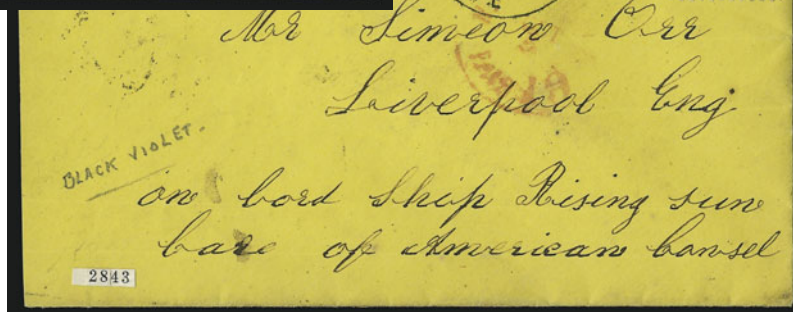 Mr Simeon Orr
Liverpool Eng
BLACK VIOLET.
on bord Ship Rising sun
Care of American Consel
2843